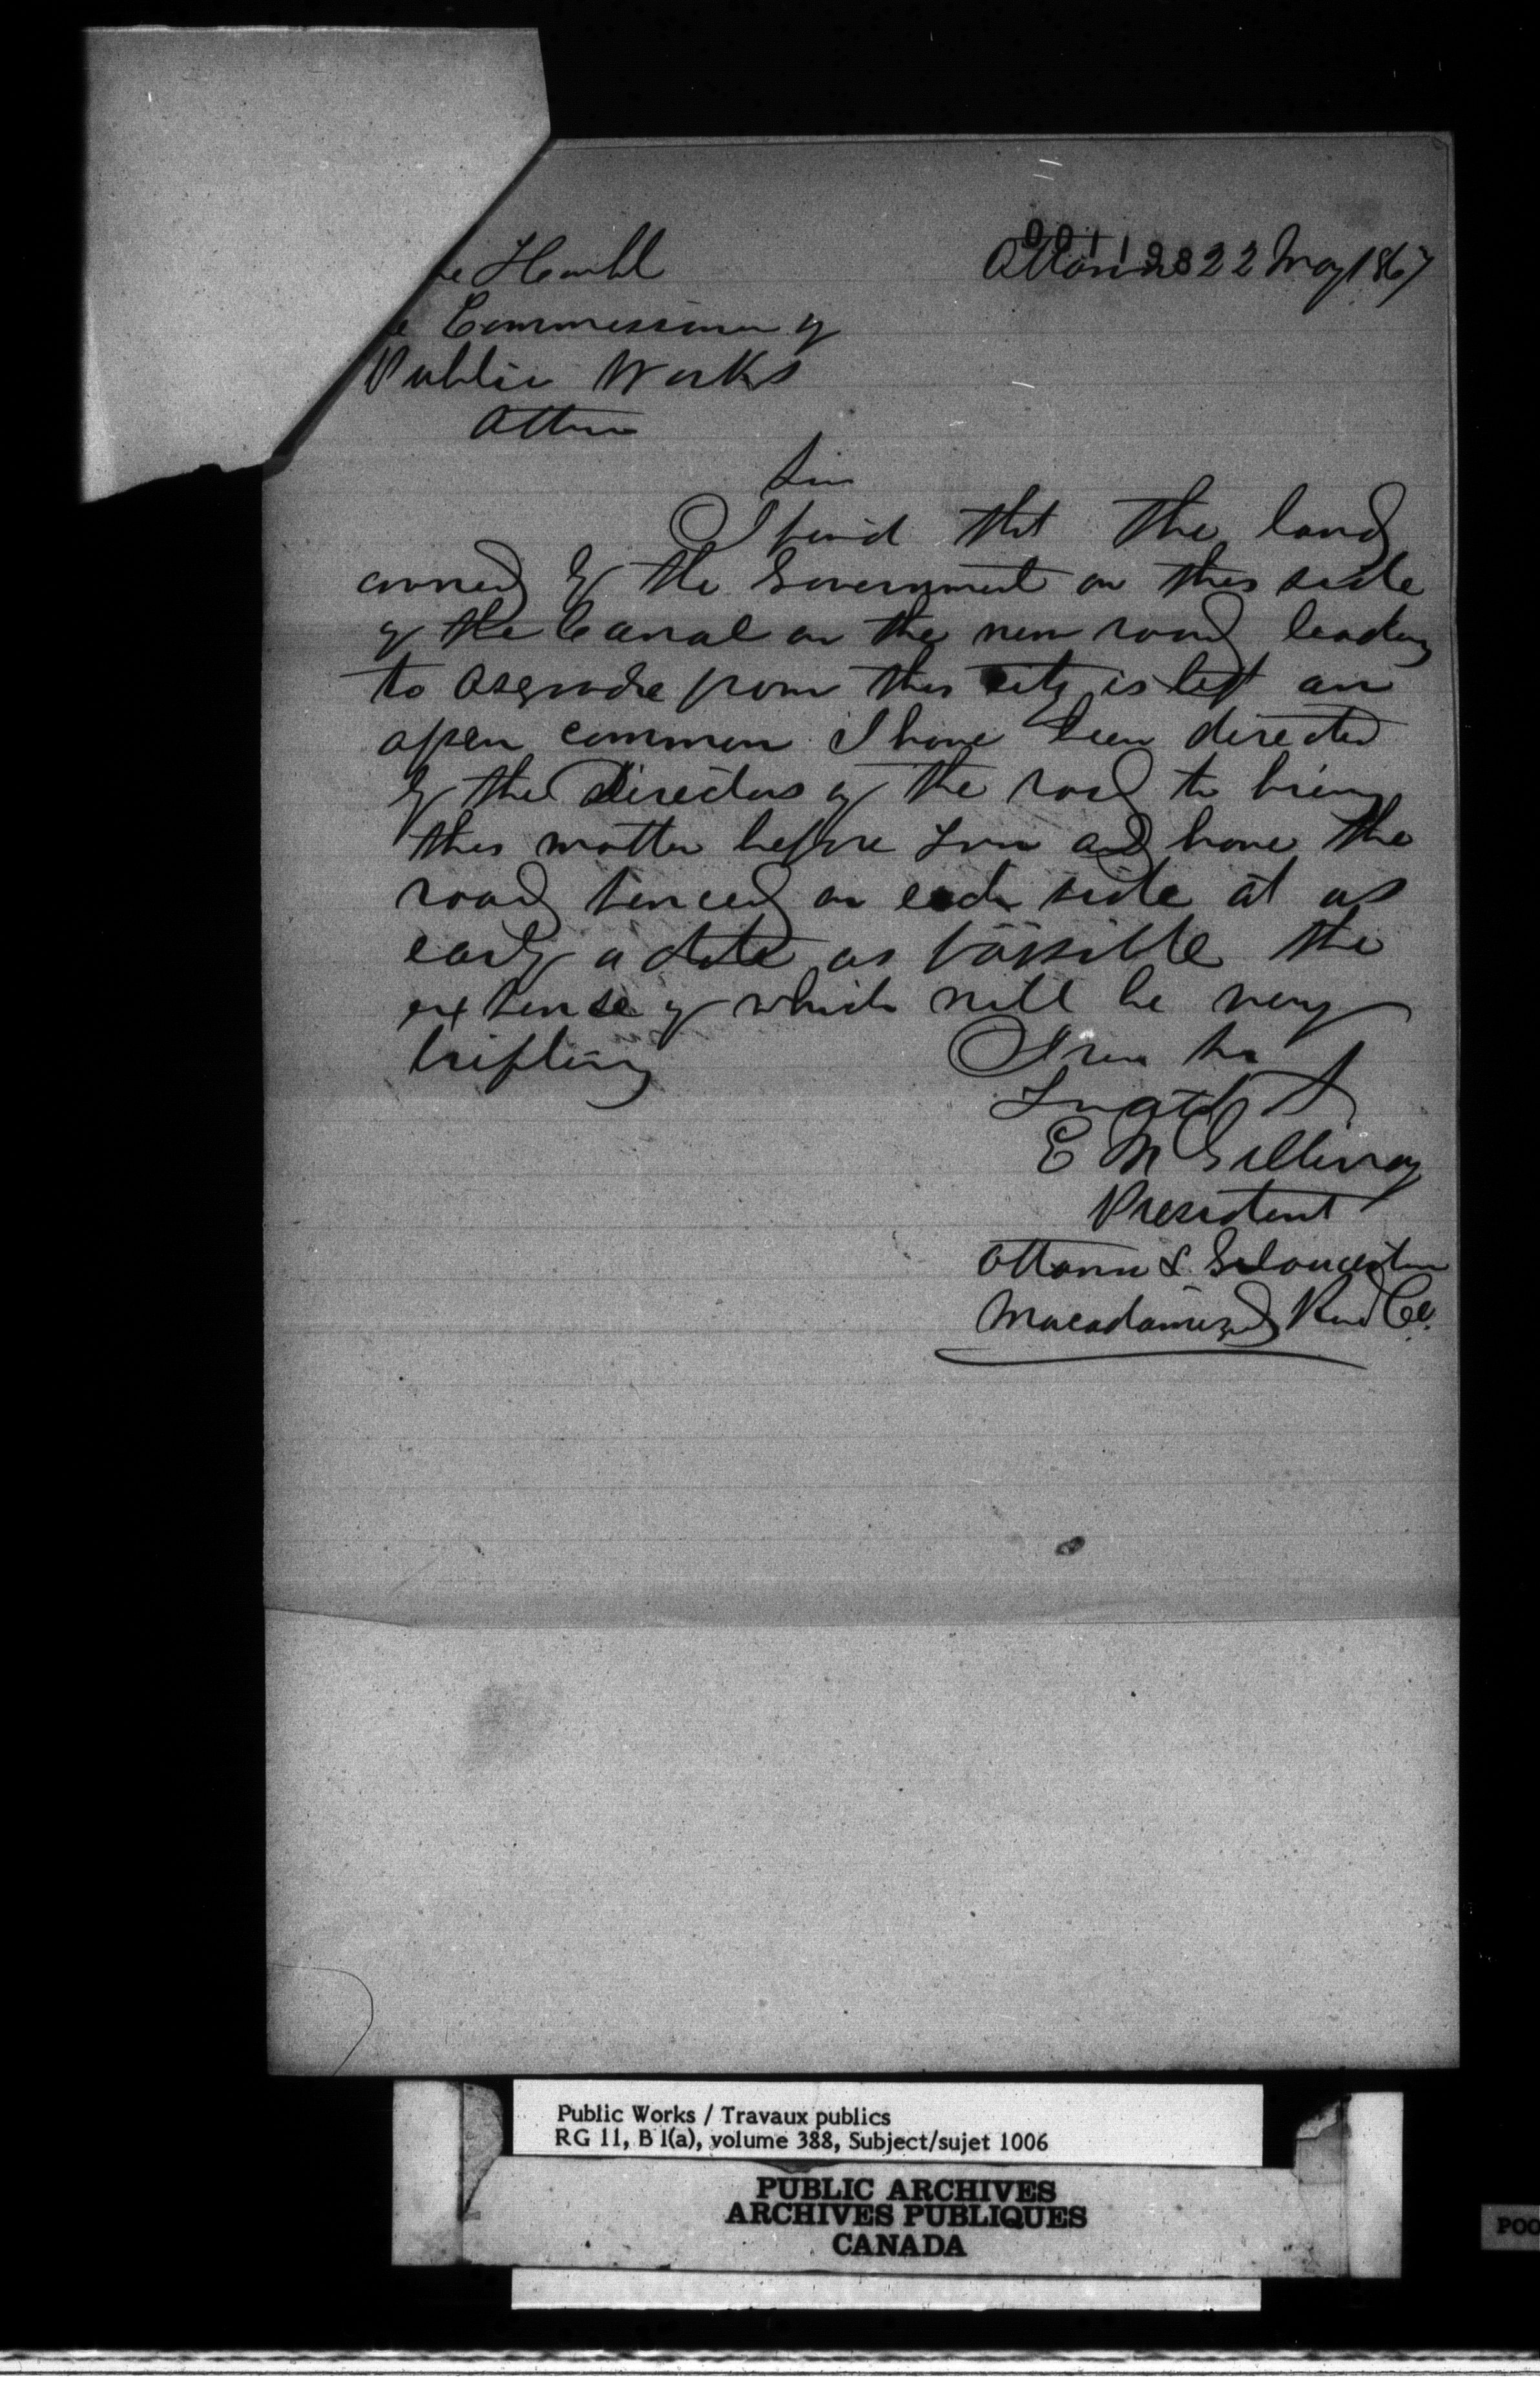 Ottawa 22 May 1867
001198
e Honbl
e Commissioner of
Public Works
Ottawa
Sir
I find that the land
owned by the Government on this side
of the Canal on the new road leading
to Osgoode from this city is left an
open common I have been directed
by the Directors of the road to bring
this matter before you and have the
road fenced on each side at as
early a date as possible the
expense of which will be very
trifling
I am Sir
E McGillivray
President
Ottawa & Gloucester
Macadamized Road Co.
Public Works / Travaux publics
RG 11, B 1(a), volume 388, Subject/sujet 1006
PUBLIC ARCHIVES
ARCHIVES PUBLIQUES
CANADA
POO